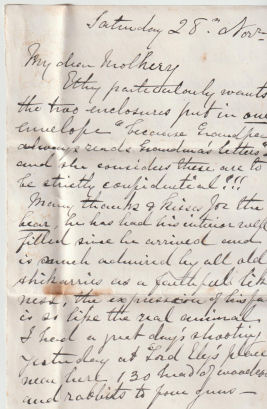 Saturday 28th Nov
My dear Motherry
Ethy particularly wants
the two enclosures put in one
envelope "because Grandpa
always reads Grandma's letters"
and she considers these are to
be strictly confidential!!!
Many thanks & kisses for the
bear, he has had his interior well
filled since he arrived and
is much admired by all old
shikarries as a faithful like
ness, the expression of his fa
is so like the real animal
I had a great day's shooting
yesterday at Lord Ely's place
near here 130 head of woodcock
and rabbits to four guns —